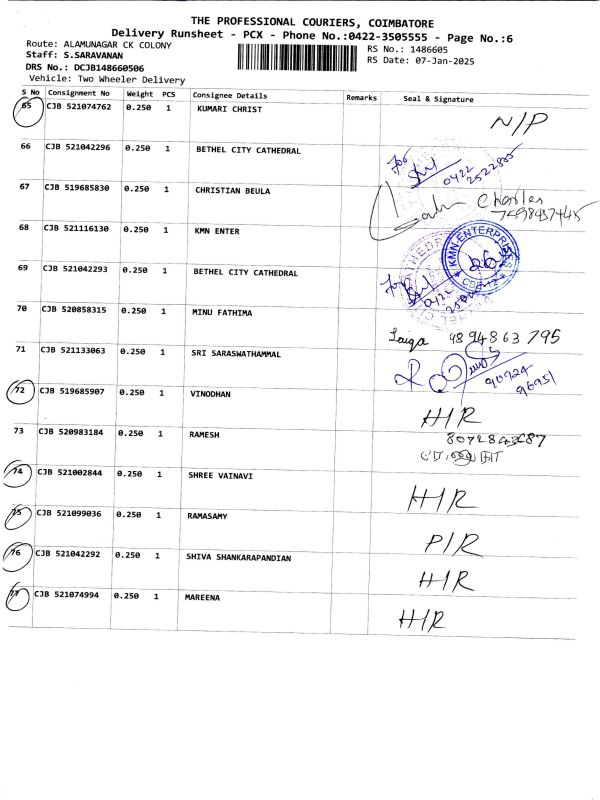 THE PROFESSIONAL COURIERS, COIMBATORE
Delivery Runsheet - PCX - Phone No.:0422-3505555 - Page No.:6
Route: ALAMUNAGAR CK COLONY
RS No.: 1486605
Staff: S.SARAVANAN
RS Date: 07-Jan-2025
DRS No.: DCJB148660506
Vehicle: Two Wheeler Delivery
S No Consignment No Weight PCS Consignee Details Remarks Seal & Signature
65 CJB 521074762 0.250 1 KUMARI CHRIST N/P
66 CJB 521042296 0.250 1 BETHEL CITY CATHEDRAL For 0422 2522885
67 CJB 519685830 0.250 1 CHRISTIAN BEULA Charles
68 CJB 521116130 0.250 1 KMN ENTER KMN ENTERPRISES
69 CJB 521042293 0.250 1 BETHEL CITY CATHEDRAL For 0422
70 CJB 520858315 0.250 1 MINU FATHIMA Laiga 9894863795
71 CJB 521133063 0.250 1 SRI SARASWATHAMMAL 90924 96951
72 CJB 519685907 0.250 1 VINODHAN H/R
73 CJB 520983184 0.250 1 RAMESH
74 CJB 521002844 0.250 1 SHREE VAINAVI H/R
75 CJB 521099036 0.250 1 RAMASAMY P/R
76 CJB 521042292 0.250 1 SHIVA SHANKARAPANDIAN H/R
77 CJB 521074994 0.250 1 MAREENA H/R